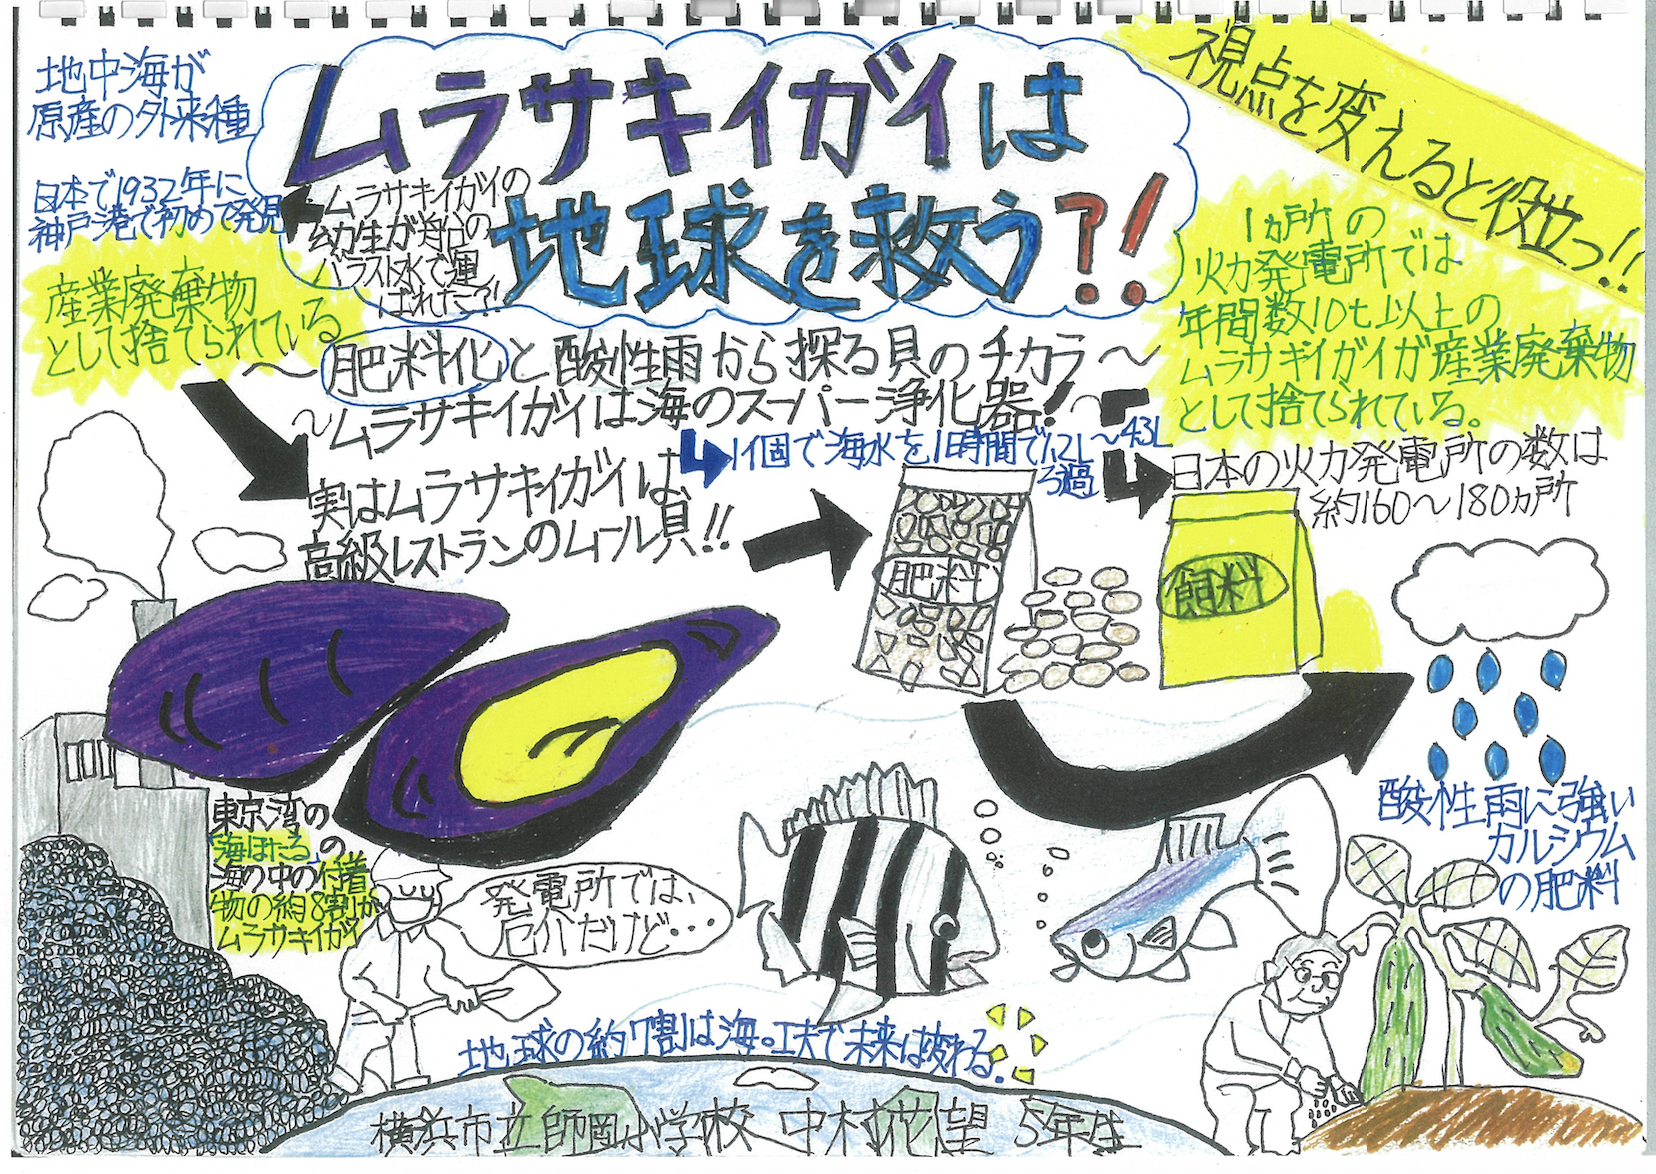 地中海が
原産の外来種
日本で1932年に
神戸港で初めて発見
ムラサキイガイは
地球を救う?!
ムラサキイガイの
幼生が船の
バラスト水で運
ばれた?!
視点を変えると役立つ!!
産業廃棄物
として捨てられている
1ヵ所の
火力発電所では
年間数10t以上の
ムラサキイガイが産業廃棄物
として捨てられている。
〜肥料化と酸性雨から探る貝のチカラ〜
〜ムラサキイガイは海のスーパー浄化器!〜
1個で海水を1時間で1.2L〜43L
ろ過
日本の火力発電所の数は
約160〜180ヵ所
実はムラサキイガイは、
高級レストランのムール貝!!
肥料
飼料
酸性雨に強い
カルシウム
の肥料
東京湾の
「海ほたる」の
海の中の付着
物の約8割が
ムラサキイガイ
発電所では、
厄介だけど・・
地球の約7割は海。工夫で未来は変わる.
横浜市立師岡小学校 中村花望 5年生